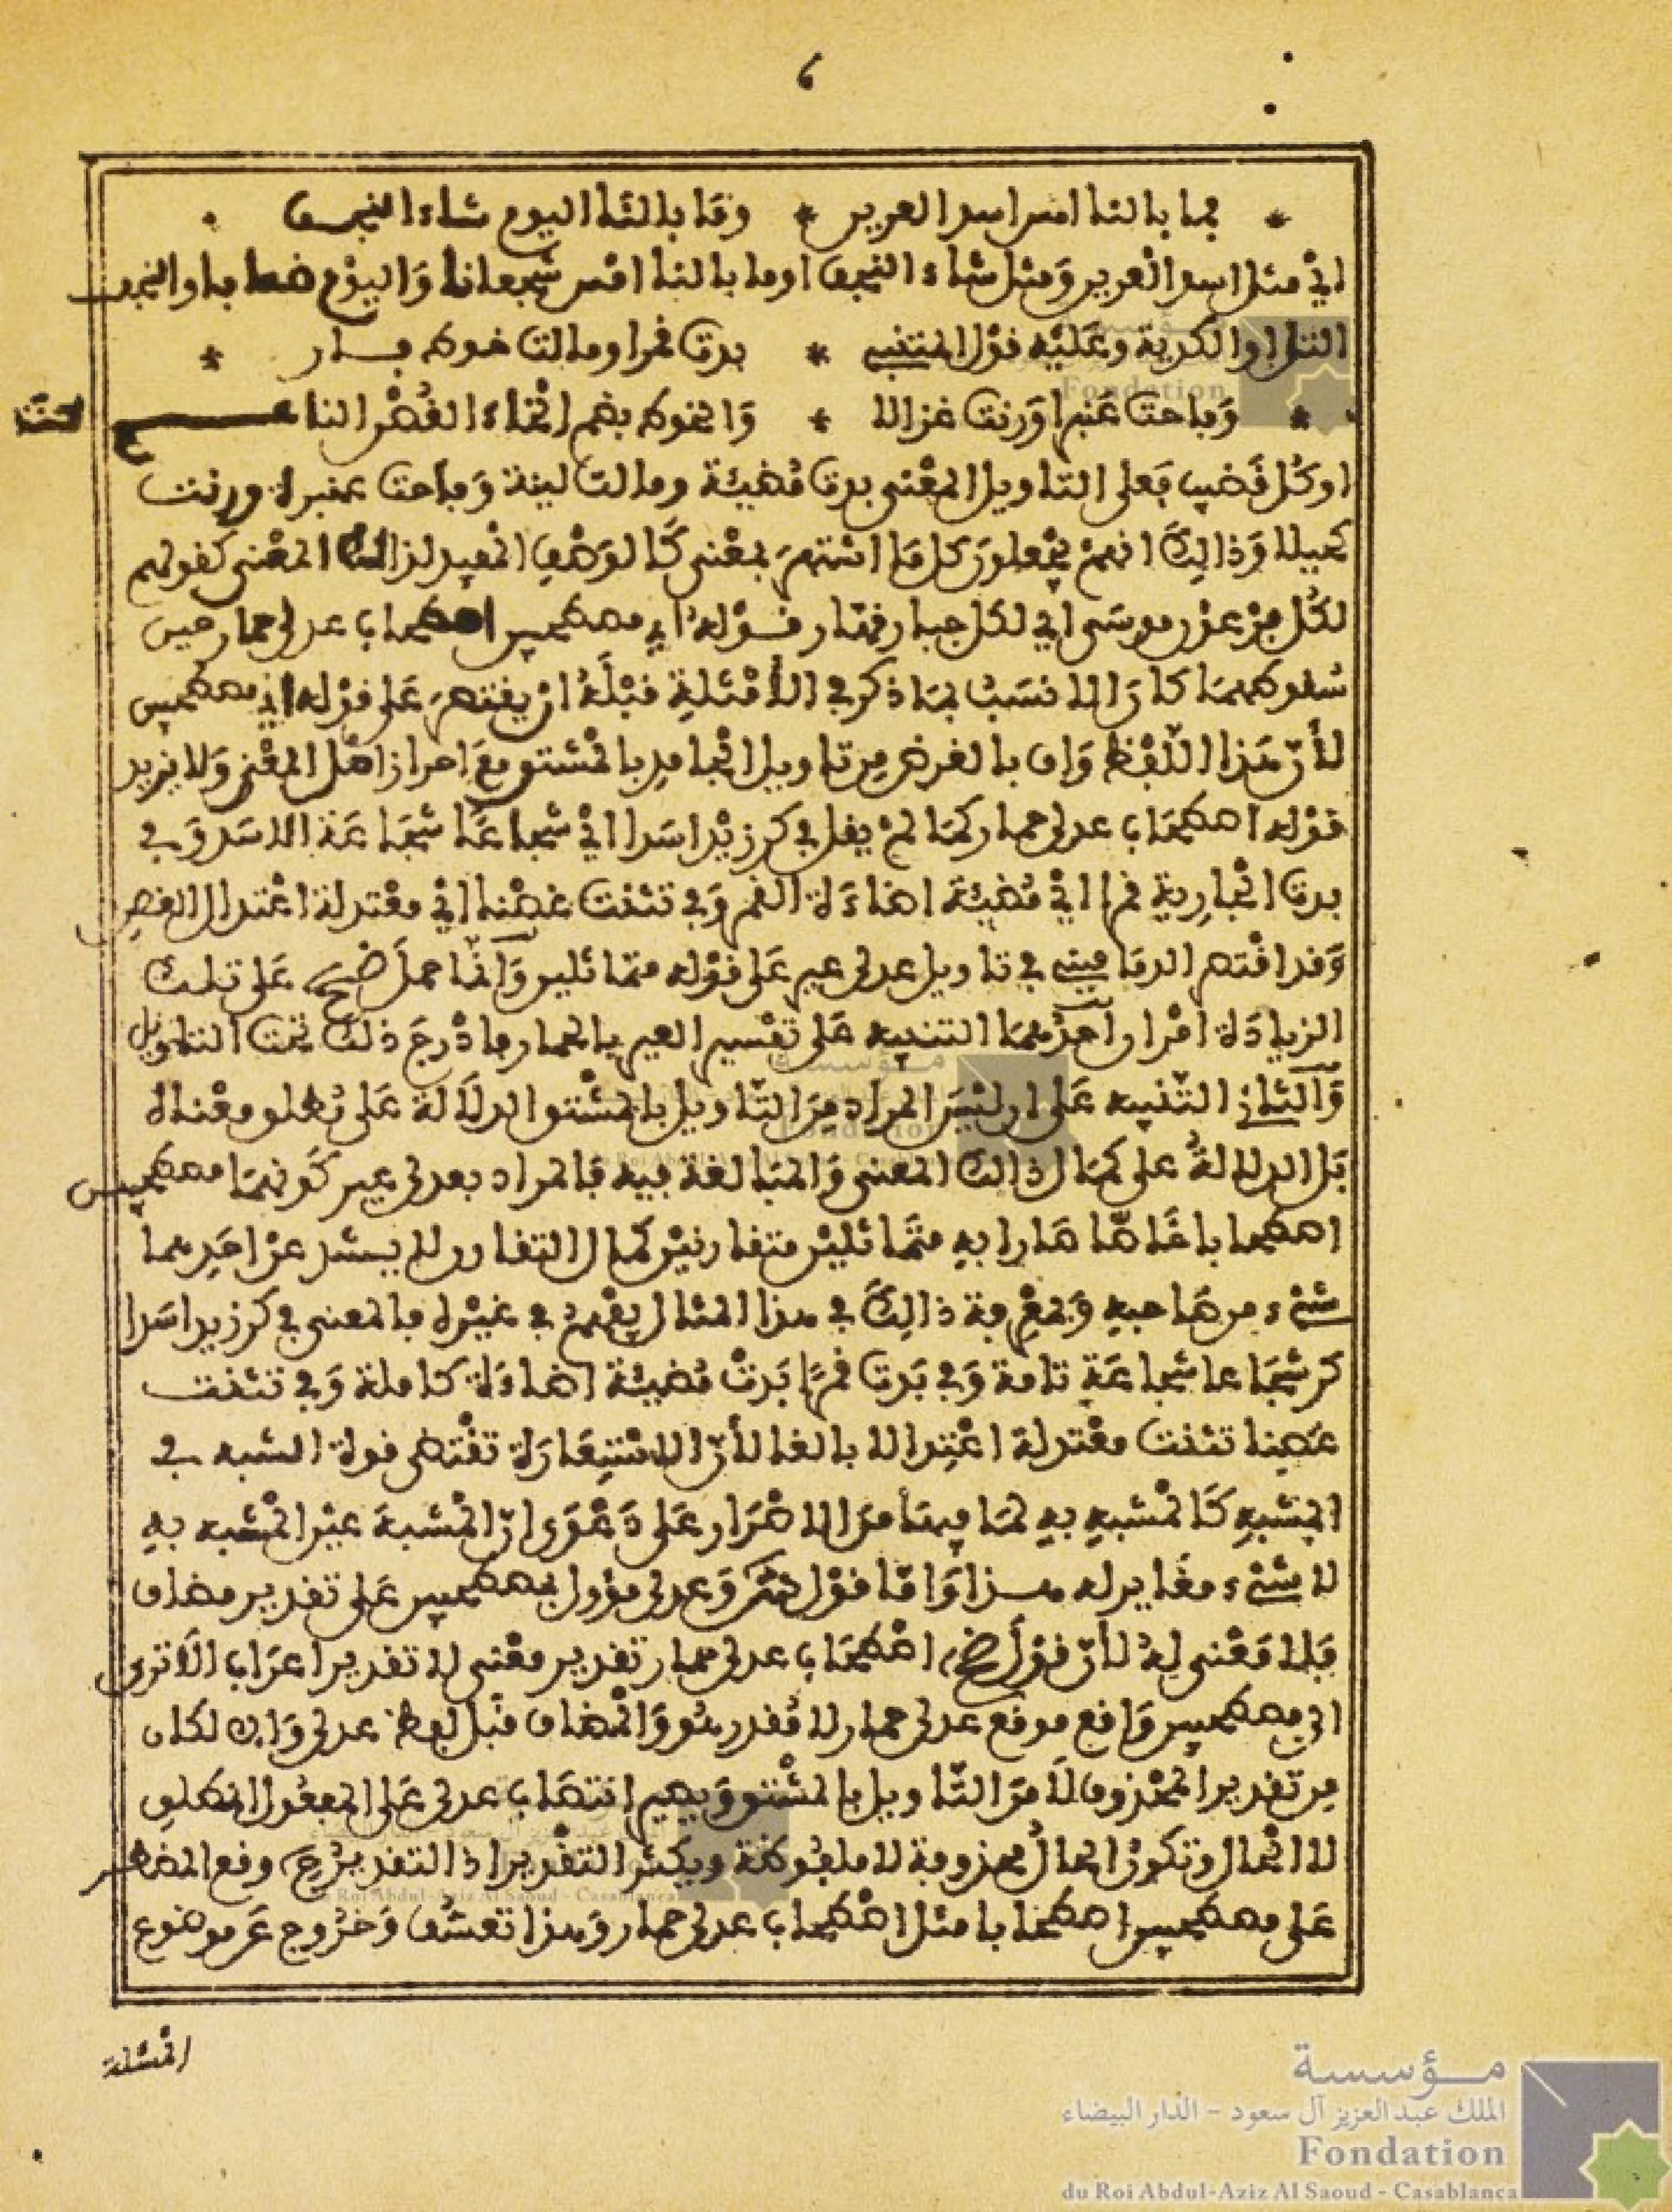 6
* فما بالنا امس اسد العرين * وما بالنا اليوم شاء النجف
اي مثل اسد العرين ومثل شاء النجف او ما بالنا امس شجعانا واليوم ضعافا والنجف
التل او الكدية وعليه قول المتنبي * بدت قمرا ومالت خوط بان *
* وفاحت عنبرا ورنت غزالا * والخوط بضم الخاء الغصن الناعم
او كل قضيب فعلى التاويل المعنى بدت مضيئة ومالت لينة وفاحت عنبرة ورنت
كحيلا وذالك انهم يجعلون كل ما اشتهر بمعنى كالوصف المفيد لذالك المعنى كقولهم
لكل فرعون موسى اي لكل جبار قهار قوله اي مصطحبين اصطحاب عدلي حمار حين
سقوطهما كان الانسب بما ذكر في الامثلة قبله ان يقتصر على قوله اي مصطحبين
لان هذا اللفظ واف بالغرض من تاويل الجامد بالمشتق مع احراز اصل المعنى ولا يزيد
قوله اصطحاب عدلي حمار كما لم يقل في كر زيد اسدا اي شجاعا شجاعة الاسد وفي
بدت الجارية قمرا اي مضيئة اضاءة القمر وفي تثنت غصنا اي معتدلة اعتدال الغصن
وقد اقتصر الدماميني في تاويل عدلي عير على قوله متماثلين وانما حمل ضيح على تلك
الزيادة امران احدهما التنبيه على تفسير العير بالحمار فادرج ذلك تحت التاويل
والثاني التنبيه على ان ليس المراد من التاويل بالمشتق الدلالة على مطلق معناه
بل الدلالة على كمال ذالك المعنى والمبالغة فيه فالمراد بعدلي عير كونهما مصطحبين
اصطحابا خاصا صارا به متماثلين متقارنين كمال التقارن لا يشذ عن احدهما
شيء من صاحبه وبمعرفة ذالك في هذا المثال يفهم في غيره فالمعنى في كر زيد اسدا
كر شجاعا شجاعة تامة وفي بدت قمرا بدت مضيئة اضاءة كاملة وفي تثنت
غصنا تثنت معتدلة اعتدالا بالغا لان الاستعارة تقتضي قوة الشبه في
المشبه كالمشبه به لما فيها من الاصرار على دعوى ان المشبه عين المشبه به
لا شيء مغاير له هذا واما قول وعدلي مؤول بمصطحبين على تقدير مضاف
فلا معنى له لان قول ضيح اصطحاب عدلي حمار تقدير معنى لا تقدير اعراب الا ترى
ان مصطحبين واقع موقع عدلي حمار لا مقدر هو والمضاف قبل لفظ عدلي والا لكان
من تقدير المحذوف لا من التاويل بالمشتق ويصير انتصاب عدلي على المفعول المطلق
لا الحال وتكون الحال محذوفة لا ملفوظة ويكثر التقدير اذ التقدير وقع المصطرعان
على مصطحبين اصطحابا مثل اصطحاب عدلي حمار وهذا تعسف وخروج عن موضوع
المسئلة
مؤسسة
الملك عبد العزيز آل سعود - الدار البيضاء
Fondation
du Roi Abdul-Aziz Al Saoud - Casablanca